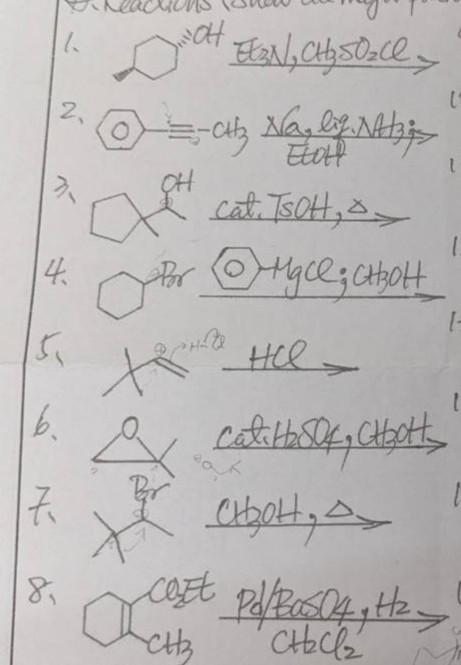 Reactions (show all major
1. OH Et3N, CH3SO2Cl
2. -CH3 Na, liq. NH3;
EtOH
3. OH cat. TsOH, Δ
4. Br MgCl; CH3OH
5. H-Cl HCl
6. O cat. H2SO4, CH3OH
7. Br CH3OH, Δ
8. CO2Et Pd/BaSO4, H2
CH3 CH2Cl2